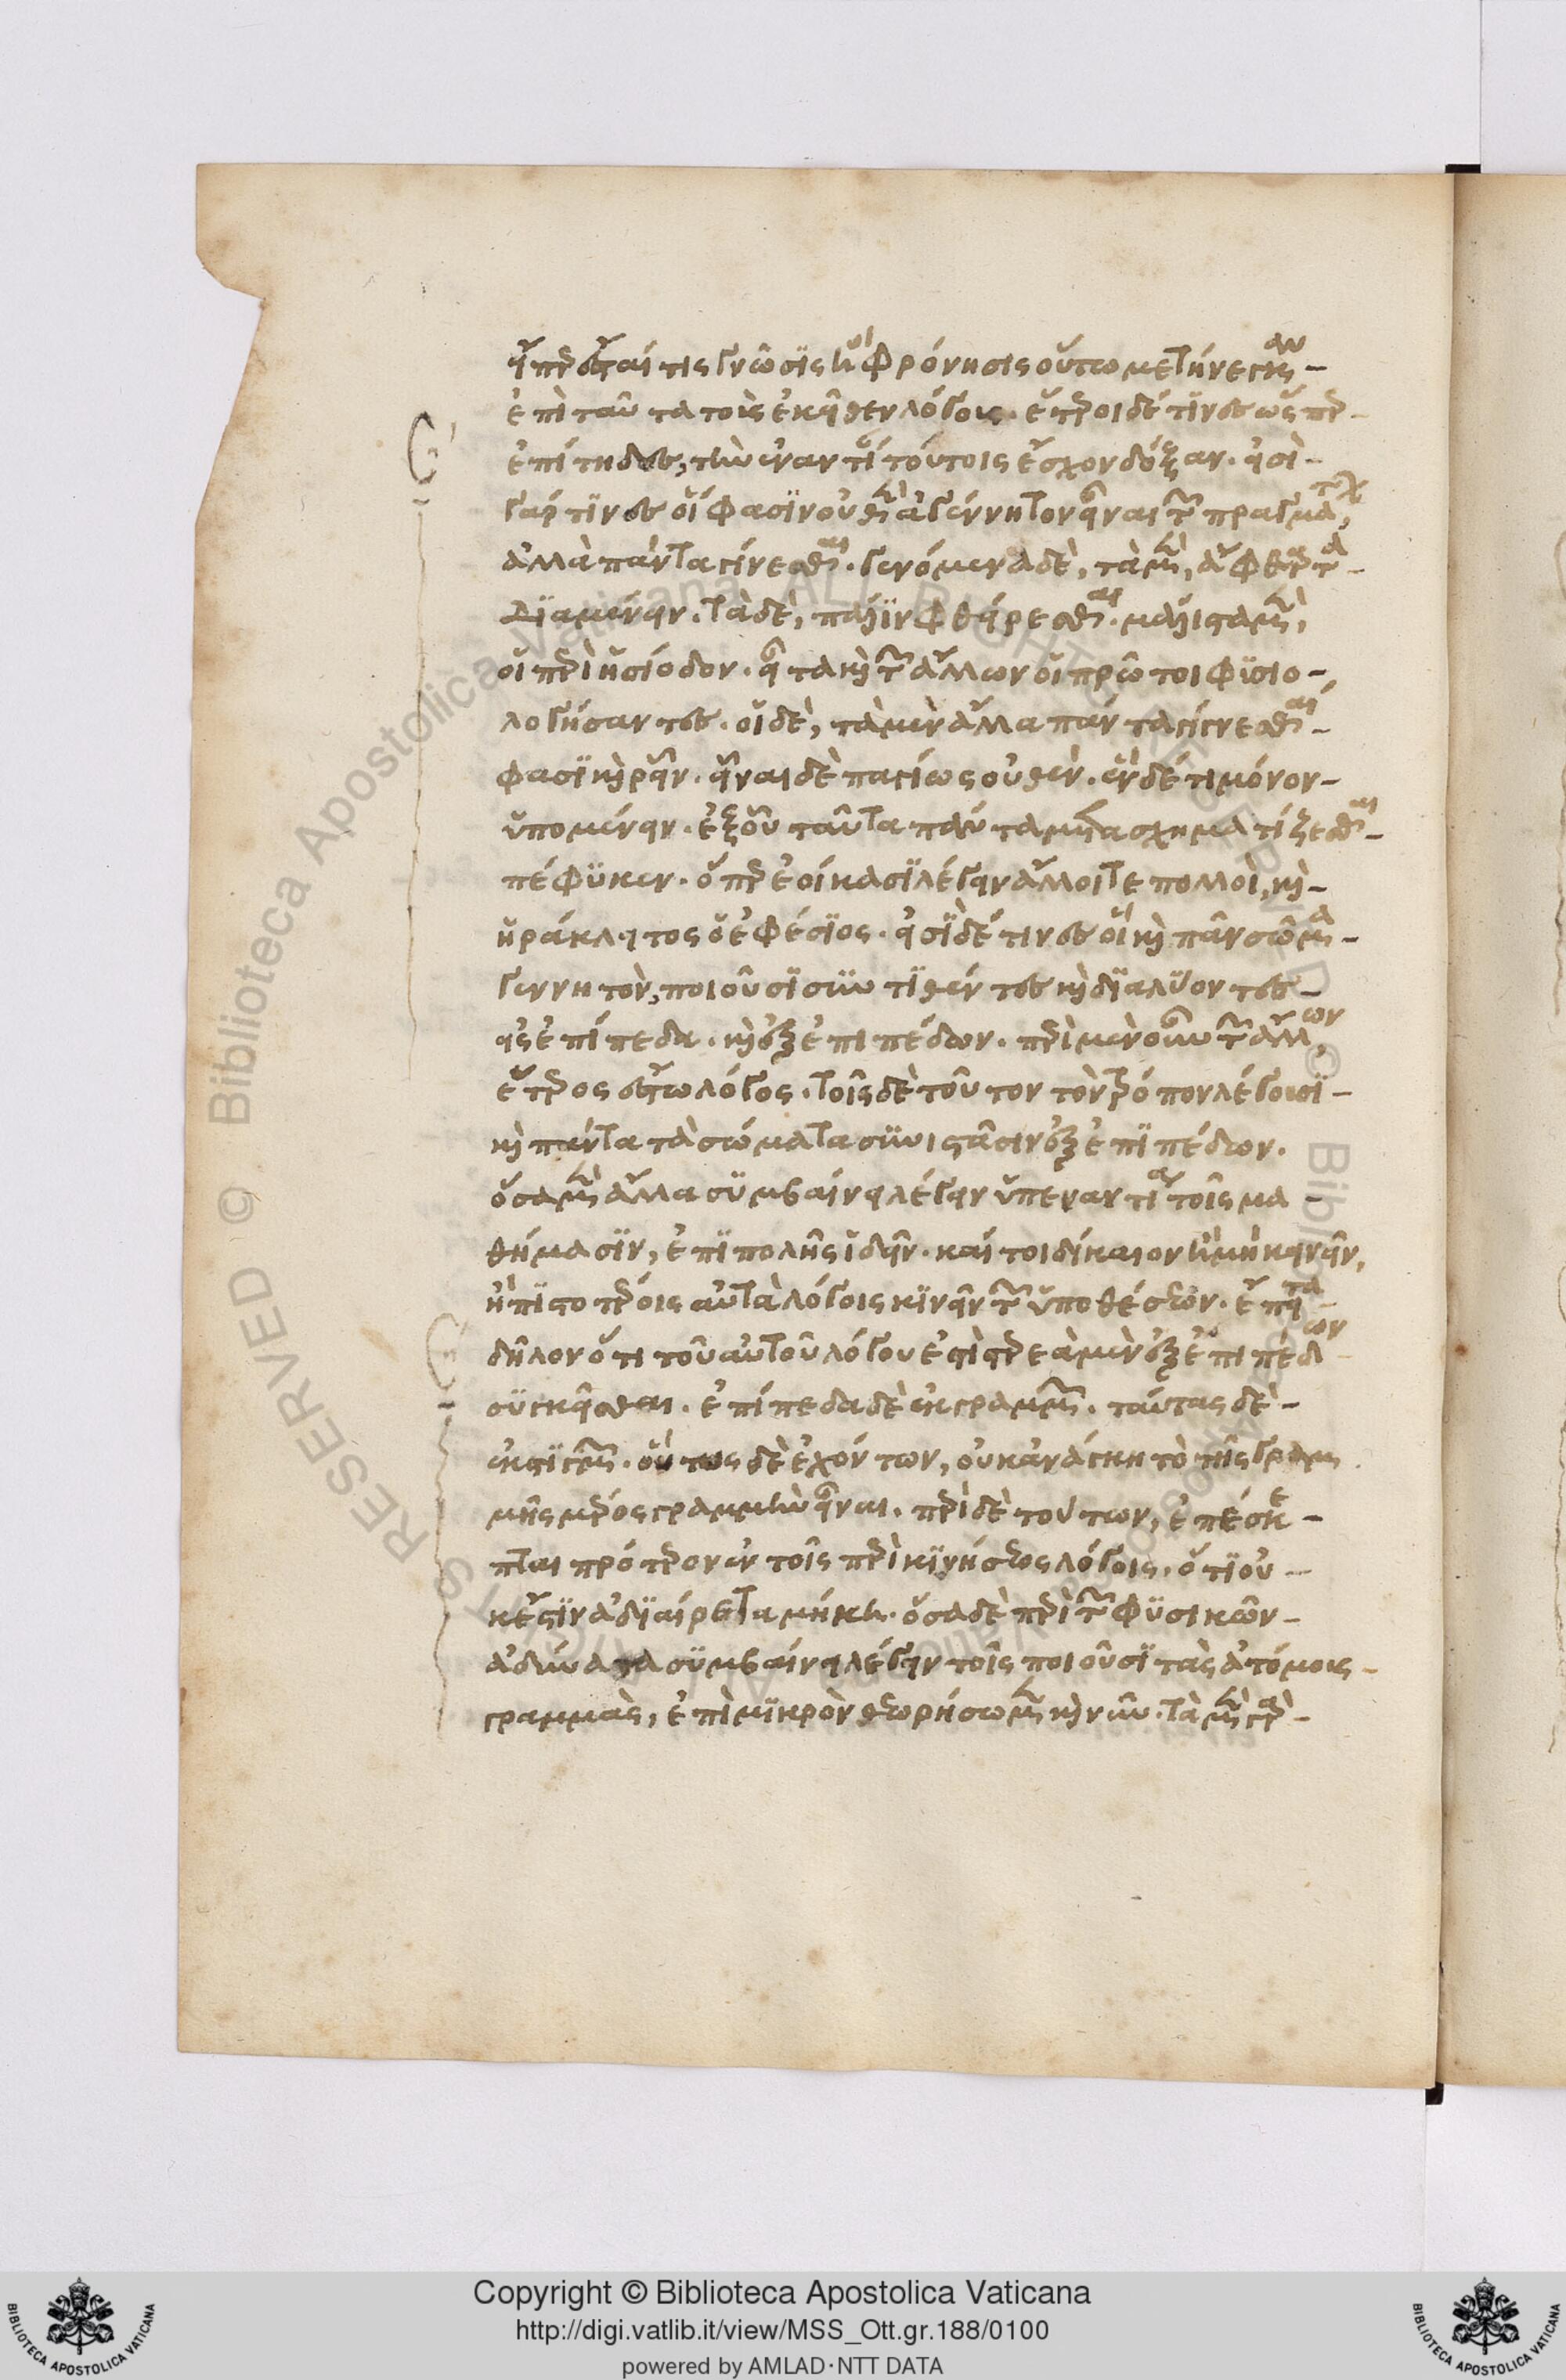 εἴπερ ἔσται τις γνῶσις ἢ φρόνησις οὕτω μετήνεγκαν-
ἐπὶ ταῦτα τοὺς ἐκεῖθεν λόγους. ἕτεροι δέ τινες ὥσπερ-
ἐπίτηδες, τὴν ἐναντίαν τούτοις ἔσχον δόξαν. εἰσὶ-
γάρ τινες οἵ φασιν οὐθὲν ἀγέννητον εἶναι τῶν πραγμάτων,
ἀλλὰ πάντα γίνεσθαι. γενόμενα δὲ, τὰ μὲν, ἄφθαρτα-
διαμένειν. τὰ δὲ, πάλιν φθείρεσθαι. μάλιστα μὲν,
οἱ περὶ ἡσίοδον. εἶτα καὶ τῶν ἄλλων οἱ πρῶτοι φυσιο-
λογήσαντες. οἱ δὲ, τὰ μὲν ἄλλα πάντα γίνεσθαι-
φασὶ καὶ ῥεῖν. εἶναι δὲ παγίως οὐθέν. ἓν δέ τι μόνον-
ὑπομένειν. ἐξ οὗ ταῦτα πάντα μετασχηματίζεσθαι-
πέφυκεν. ὅπερ ἐοίκασι λέγειν ἄλλοι τε πολλοὶ, καὶ-
ἡράκλειτος ὁ ἐφέσιος. εἰσὶ δέ τινες οἳ καὶ πᾶν σῶμα-
γεννητὸν, ποιοῦσι συντιθέντες καὶ διαλύοντες-
εἰς ἐπίπεδα. καὶ ἐξ ἐπιπέδων. περὶ μὲν οὖν τῶν ἄλλων,
ἕτερος ἔστω λόγος. τοῖς δὲ τοῦτον τὸν τρόπον λέγουσι-
καὶ πάντα τὰ σώματα συνιστᾶσιν ἐξ ἐπιπέδων.
ὅσα μὲν ἄλλα συμβαίνει λέγειν ὑπεναντία τοῖς μα-
θήμασιν, ἐπιπολῆς ἰδεῖν. καίτοι δίκαιον ἦν ἢ μὴ κινεῖν,
ἢ πιστοτέροις αὐτὰ λόγοις κινεῖν τῶν ὑποθέσεων. ἔπειτα-
δῆλον ὅτι τοῦ αὐτοῦ λόγου ἐστὶ στερεὰ μὲν ἐξ ἐπιπέδων
συγκεῖσθαι. ἐπίπεδα δὲ ἐκ γραμμῶν. ταύτας δὲ-
ἐκ στιγμῶν. οὕτως δὲ ἐχόντων, οὐκ ἀνάγκη τὸ τῆς γραμ
μῆς μέρος γραμμὴν εἶναι. περὶ δὲ τούτων, ἐπέσκε-
πται πρότερον ἐν τοῖς περὶ κινήσεως λόγοις. ὅτι οὐ-
κ ἔστιν ἀδιαίρετα μήκη. ὅσα δὲ περὶ τῶν φυσικῶν-
ἀδύνατα συμβαίνει λέγειν τοῖς ποιοῦσι τὰς ἀτόμους-
γραμμὰς, ἐπὶ μικρὸν θεωρήσωμεν καὶ νῦν. τὰ μὲν γὰρ-
Copyright © Biblioteca Apostolica Vaticana
http://digi.vatlib.it/view/MSS_Ott.gr.188/0100
powered by AMLAD·NTT DATA